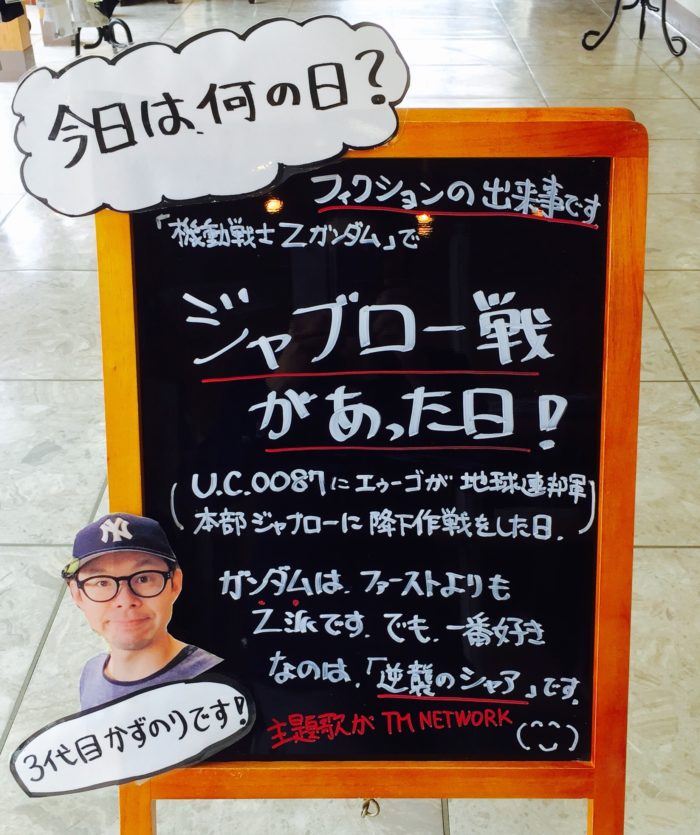 今日は、何の日？
フィクションの出来事です
「機動戦士Zガンダム」で
ジャブロー戦
があった日！
(U.C.0087にエゥーゴが地球連邦軍
本部ジャブローに降下作戦をした日.)
ガンダムは、ファーストよりも
Z派です。でも、一番好き
なのは、「逆襲のシャア」です。
主題歌がTM NETWORK (^‿^)
NY
3代目かずのりです！